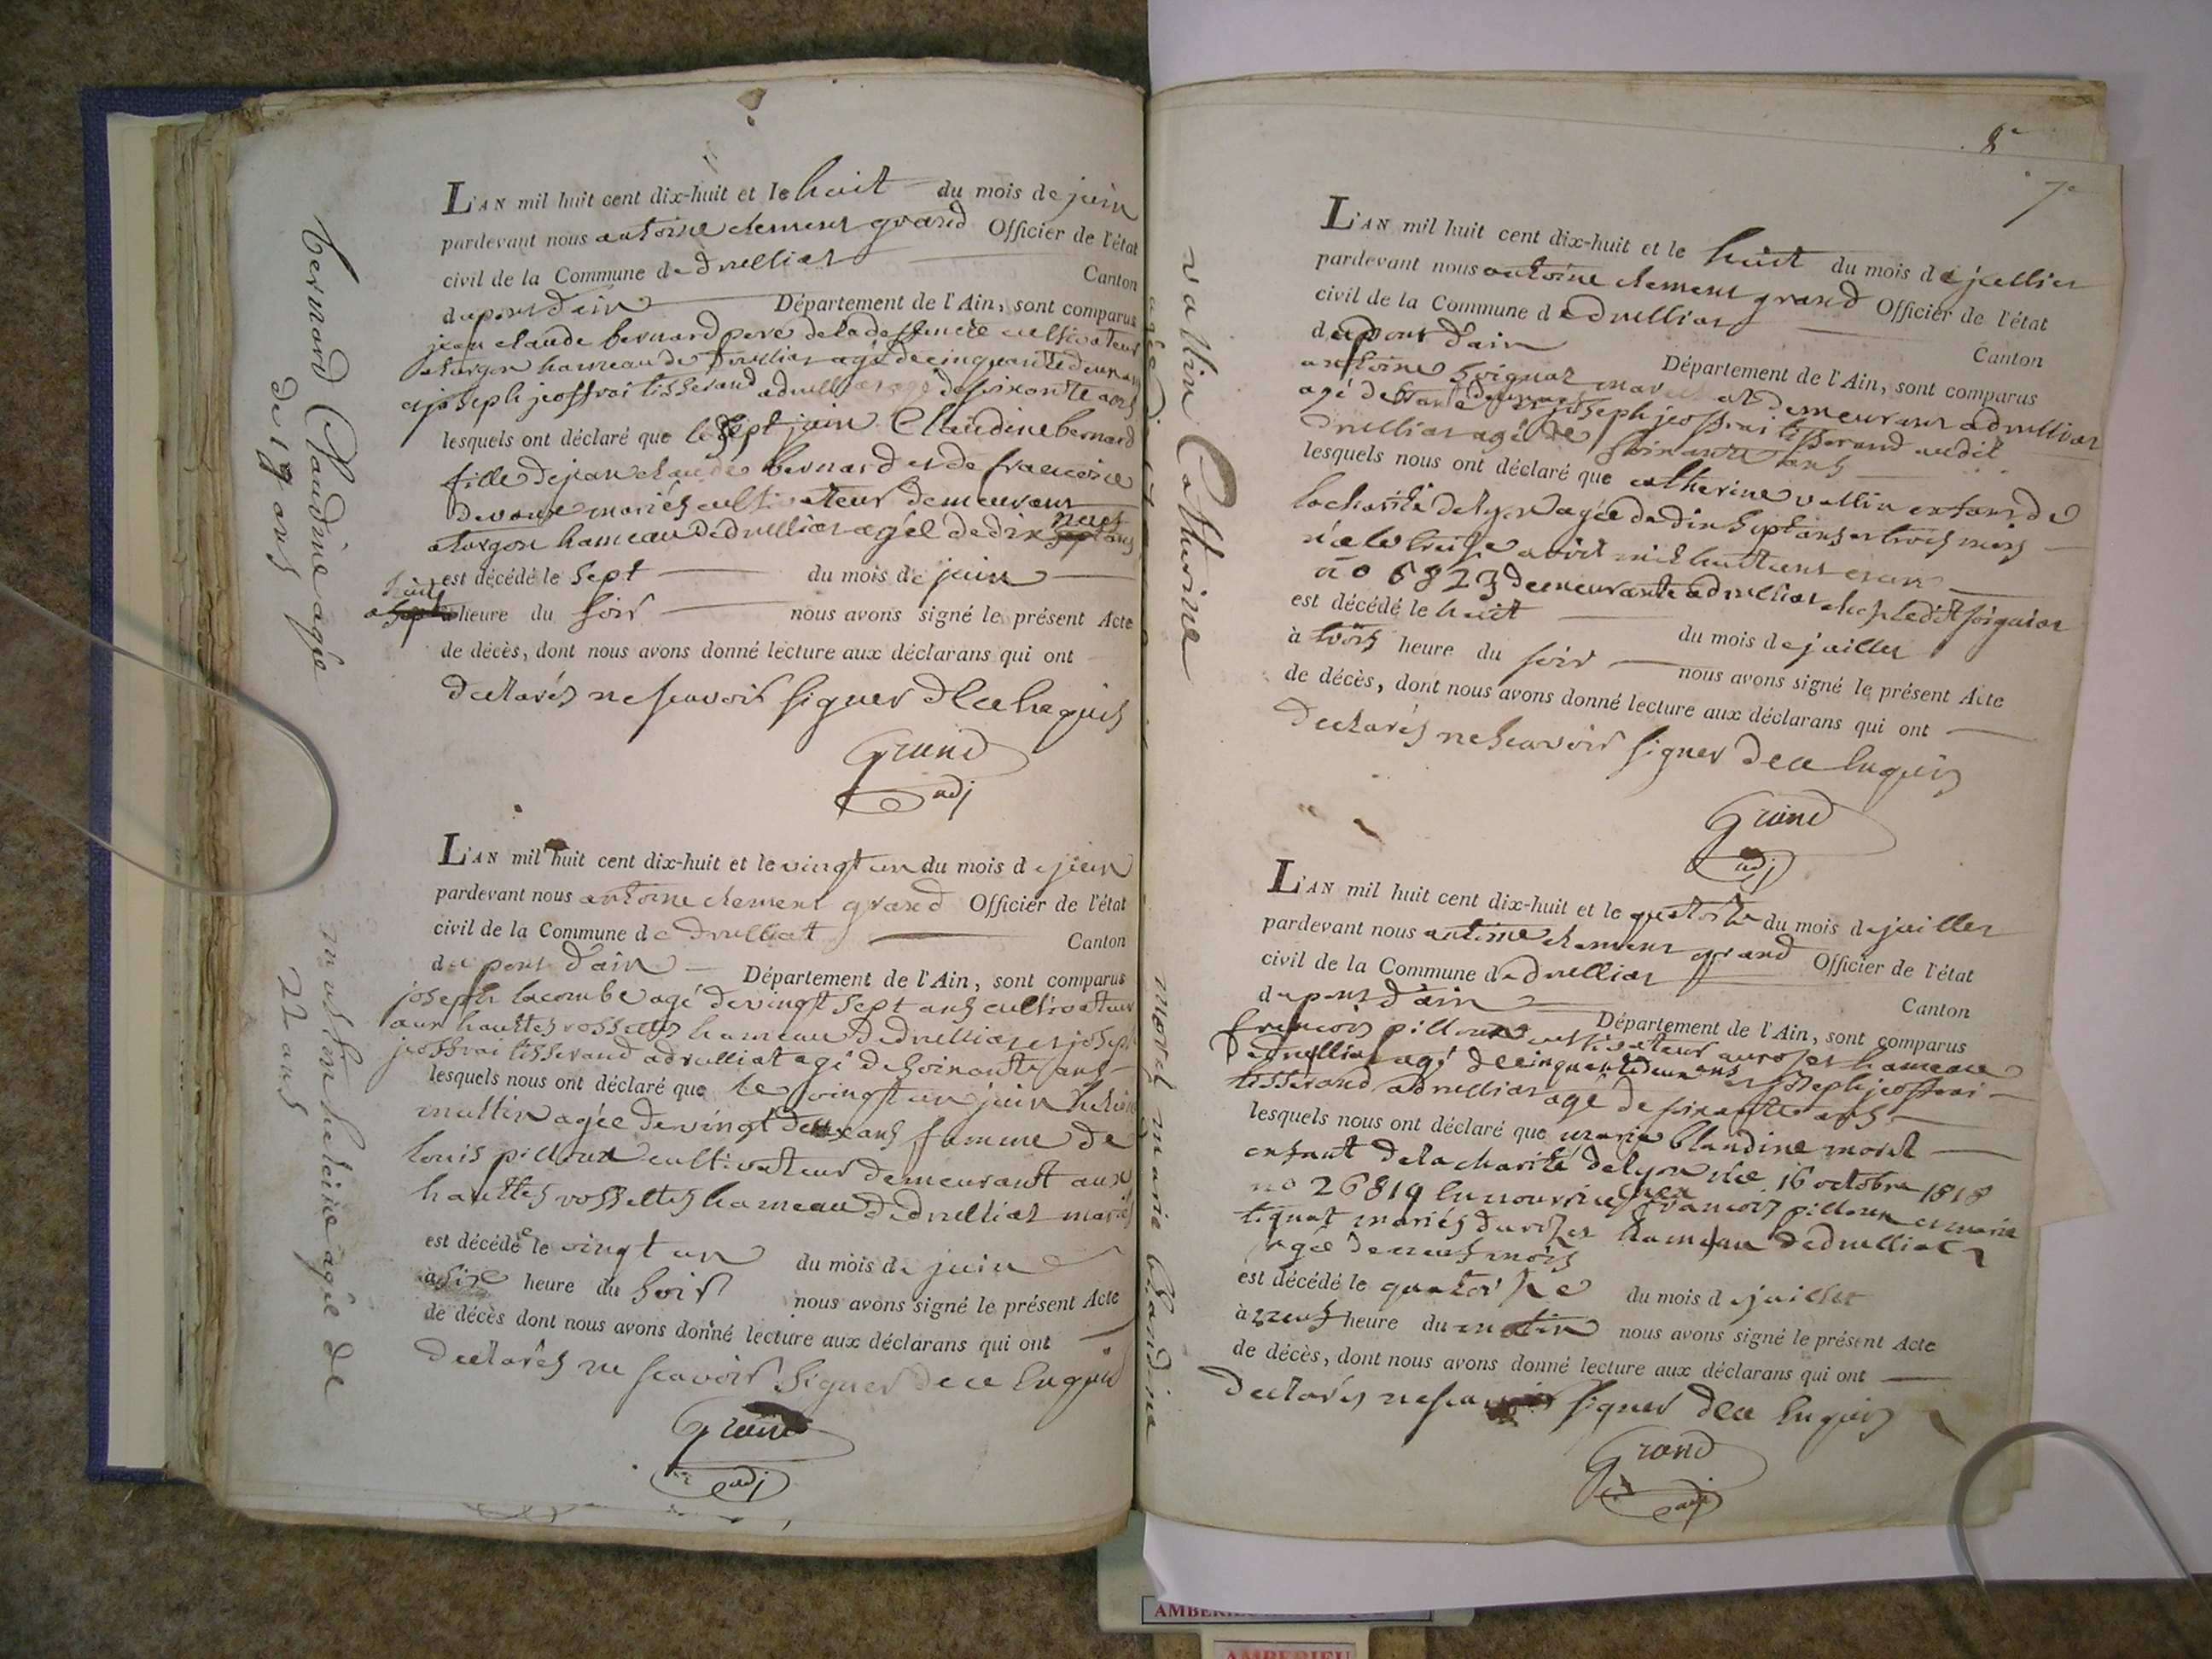 bernard Claudine agée
de 19 ans
L'AN mil huit cent dix-huit et le huit du mois de juin
pardevant nous antoine clement grand Officier de l'état
civil de la Commune de druillat
Canton
du pont d'ain Département de l'Ain, sont comparus
jean claude bernard pere de la deffuncte cultivateur
a turgon hameau de druillat agé de cinquante deux ans
et joseph jeoffrai tisserand a druillat agé de soixante ans
lesquels ont déclaré que le sept juin Claudine bernard
fille de jean claude bernard et de francoise
mariés cultivateur demeurant
a turgon hameau de druillat agée de dix neuf ans
est décédé le sept du mois de juin
a huit heure du soir nous avons signé le présent Acte
de décès, dont nous avons donné lecture aux déclarans qui ont
declarés ne scavoir signer de ce enquis
Grand
adj
mathin heleine agée de
22 ans
L'AN mil huit cent dix-huit et le vingt un du mois de juin
pardevant nous antoine clement grand Officier de l'état
civil de la Commune de druillat
Canton
du pont d'ain Département de l'Ain, sont comparus
joseph lacombe agé de vingt sept ans cultivateur
aux hauttes rossettes hameau de druillat et joseph
jeoffrai tisserand a druillat agé de soixante ans
lesquels nous ont déclaré que le vingt un juin
agée de vingt deux ans femme de
louis pilloux cultivateur demeurant aux
hauttes vossettes hameau de druillat mariés
est décédée le vingt un du mois de juin
a six heure du soir nous avons signé le présent Acte
de décès dont nous avons donné lecture aux déclarans qui ont
declarés ne scavoir signer de ce enquis
Grand
adj
8e
7e
vallin Catherine
L'AN mil huit cent dix-huit et le huit du mois de juillet
pardevant nous antoine clement grand Officier de l'état
civil de la Commune de druillat
Canton
du pont d'ain Département de l'Ain, sont comparus
antoine soignat demeurant a druillat
agé de et joseph jeoffrai tisserand audit
druillat agé de soixante ans
lesquels nous ont déclaré que catherine vallin enfant de
la charité de lyon agée de dix sept ans et trois mois
née le treize avril mil huit cent un
no 6823 demeurante a druillat chez ledit soignat
est décédé le huit du mois de juillet
à trois heure du soir nous avons signé le présent Acte
de décès, dont nous avons donné lecture aux déclarans qui ont
declarés ne scavoir signer de ce enquis
Grand
adj
morel marie blandine
L'AN mil huit cent dix-huit et le quatorze du mois de juillet
pardevant nous antoine clement grand Officier de l'état
civil de la Commune de druillat
Canton
du pont d'ain Département de l'Ain, sont comparus
francois pilloux cultivateur au rozet hameau
de druillat agé de cinquante deux ans et joseph jeoffrai
tisserand a druillat agé de soixante ans
lesquels nous ont déclaré que marie blandine morel
enfant de la charité de lyon née 16 octobre 1818
no 26819 en nourrice chez francois pilloux et marie
mariés du rozet hameau de druillat
agée de neuf mois
est décédé le quatorze du mois de juillet
à neuf heure du matin nous avons signé le présent Acte
de décès, dont nous avons donné lecture aux déclarans qui ont
declarés ne scavoir signer de ce enquis
Grand
adj